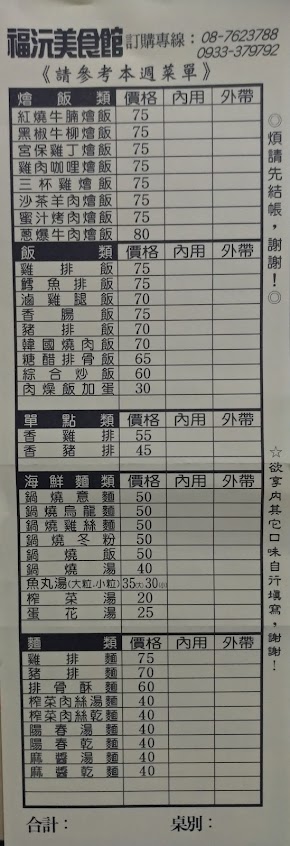 福沅美食館 訂購專線：08-7623788
0933-379792
《請參考本週菜單》
燴飯類 價格 內用 外帶
紅燒牛腩燴飯 75
黑椒牛柳燴飯 75
宮保雞丁燴飯 75
雞肉咖哩燴飯 75
三杯雞燴飯 75
沙茶羊肉燴飯 75
蜜汁烤肉燴飯 75
蔥爆牛肉燴飯 80
飯類 價格 內用 外帶
雞排飯 75
鱈魚排飯 75
滷雞腿飯 70
香腸飯 75
豬排飯 70
韓國燒肉飯 70
糖醋排骨飯 65
綜合炒飯 60
肉燥飯加蛋 30
單點類 價格 內用 外帶
香雞排 55
香豬排 45
海鮮麵類 價格 內用 外帶
鍋燒意麵 50
鍋燒烏龍麵 50
鍋燒雞絲麵 50
鍋燒冬粉 50
鍋燒飯 50
鍋燒湯 40
魚丸湯(大粒.小粒) 35(大)30(小)
榨菜湯 20
蛋花湯 25
麵類 價格 內用 外帶
雞排麵 75
豬排麵 70
排骨酥麵 60
榨菜肉絲湯麵 40
榨菜肉絲乾麵 40
陽春湯麵 40
陽春乾麵 40
麻醬湯麵 40
麻醬乾麵 40
合計： 桌別：
◎煩請先結帳，謝謝！◎
☆欲享內其它口味自行填寫，謝謝！